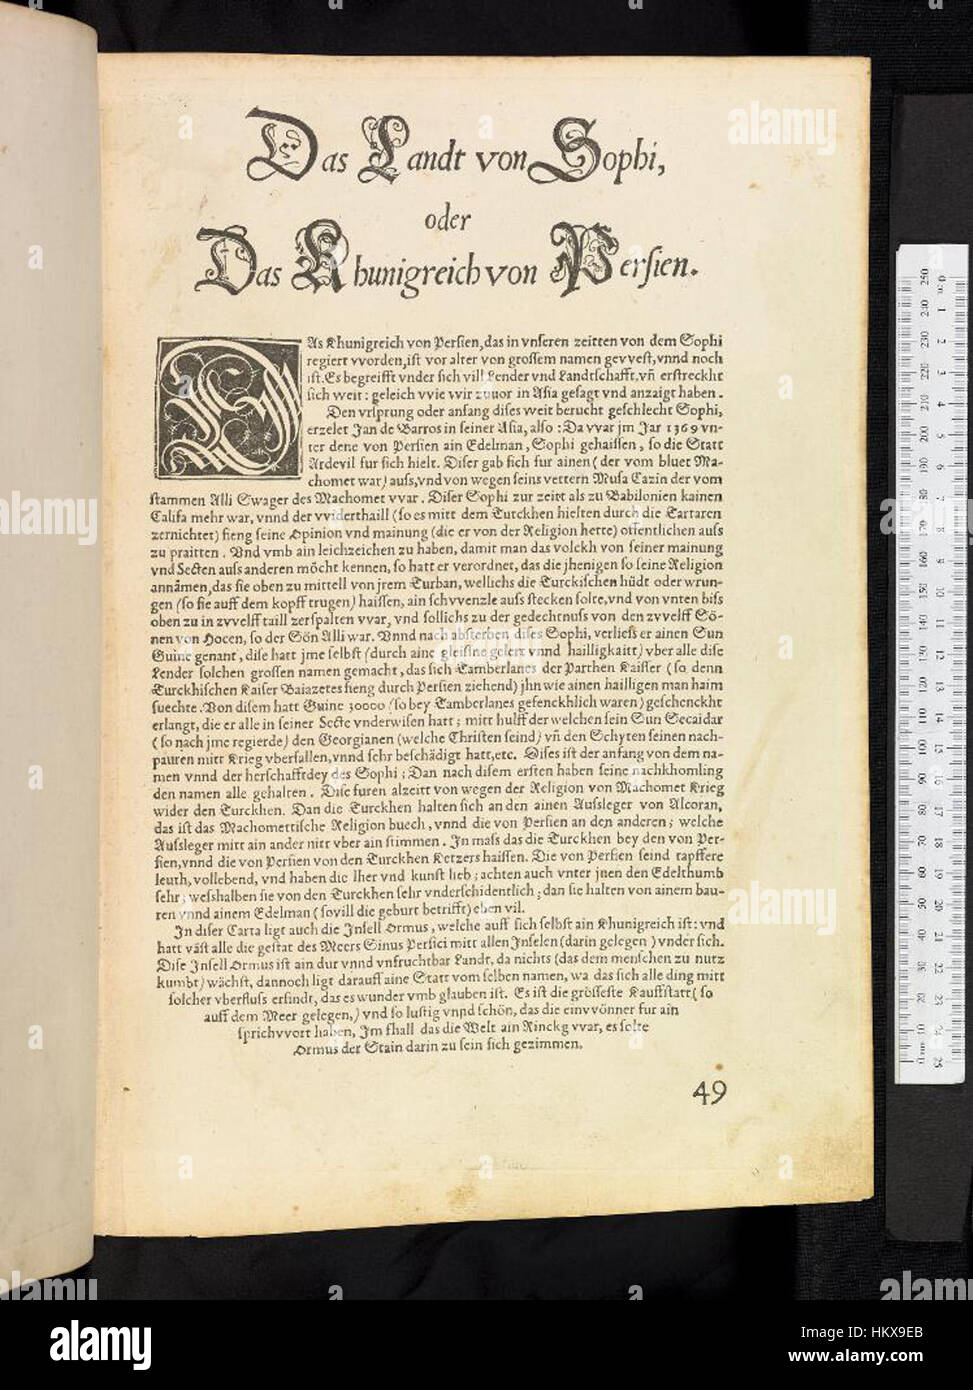 Das Landt von Sophi,
oder
Das Khunigreich von Persien.
DAs Khunigreich von Persien, das in vnseren zeitten von dem Sophi
regiert vvorden, ist vor alter von grossem namen gevvest, vnnd noch
ist. Es begreifft vnder sich vill Lender vnd Landtschafft, vñ erstreckht
sich weit: geleich vvie vvir zuuor in Asia gesagt vnd anzaigt haben.
Den vrsprung oder anfang dises vveit berucht geschlecht Sophi,
erzelet Jan de Barros in seiner Asia, also: Da vvar jm Jar 1369 vn-
ter dene von Persien ain Edelman, Sophi gehaissen, so die Statt
Ardevil fur sich hielt. Diser gab sich fur ainen (der vom bluet Ma-
chomet war) auss, vnd von wegen seins vettern Musa Cazin der vom
stammen Alli Swager des Machomet vvar. Diser Sophi zur zeitt als zu Babilonien kainen
Califa mehr war, vnnd der vviderthaill (so es mitt dem Turckhen hielten durch die Tartaren
zernichtet) fieng seine Opinion vnd mainung (die er von der Religion hette) offentlichen auss
zu praitten. Vnd vmb ain leichzeichen zu haben, damit man das volckh von seiner mainung
vnd Secten auss anderen möcht kennen, so hatt er verordnet, das die jhenigen so seine Religion
annâmen, das sie oben zu mittell von jrem Turban, wellichs die Turckischen hüdt oder wrun-
gen (so sie auff dem kopff trugen) haissen, ain schvvenzle auss stecken solte, vnd von vnten biss
oben zu in zvvelff taill zerspalten vvar, vnd sollichs zu der gedechtnuss von den zvvelff Sö-
nen von Hocen, so der Sön Alli war. Vnnd nach absterben dises Sophi, verliess er ainen Sun
Guine genant, dise hatt jme selbst (durch aine gleissne gelert vnnd hailligkaitt) vber alle dise
Lender solchen grossen namen gemacht, das sich Tamberlanes der Parthen Kaisser (so denn
Turckhischen Kaiser Baiazetes fieng durch Persien ziehend) jhn wie ainen hailligen man haim
suechte. Von disem hatt Guine 30000 (so bey Tamberlanes gefenckhlich waren) geschenckht
erlangt, die er alle in seiner Secte vnderwisen hatt; mitt hulff der welchen sein Sun Secaidar
(so nach jme regierde) den Georgianen (welche Christen seind) vñ den Schyten seinen nach-
pauren mitt Krieg vberfallen, vnnd sehr beschädigt hatt, etc. Dises ist der anfang von dem na-
men vnnd der herschafftdey des Sophi; Dan nach disem ersten haben seine nachkhomling
den namen alle gehalten. Dise furen alzeitt von wegen der Religion von Machomet Krieg
wider den Turckhen. Dan die Turckhen halten sich an den ainen Aussleger von Alcoran,
das ist das Machomettische Religion buech, vnnd die von Persien an den anderen; welche
Aussleger mitt ain ander nitt vber ain stimmen. In mass das die Turckhen bey den von Per-
sien, vnnd die von Persien von den Turckhen Ketzers haissen. Die von Persien seind rapffere
leuth, vollebend, vnd haben die lher vnd kunst lieb; achten auch vnter jnen den Edelthumb
sehr; wesshalben sie von den Turckhen sehr vnderschidentlich; dan sie halten von ainem bau-
ren vnnd ainem Edelman (sovill die geburt betrifft) eben vil.
In diser Carta ligt auch die Insell Ormus, welche auff sich selbst ain Khunigreich ist: vnd
hatt väst alle die gestat des Meers Sinus Persici mitt allen Inselen (darin gelegen) vnder sich.
Dise Insell Ormus ist ain dur vnnd vnfruchtbar Landt, da nichts (das dem menschen zu nutz
kumbt) wächst, dannoch ligt darauff aine Statt vom selben namen, wa das sich alle ding mitt
solcher vberfluss erfindt, das es wunder vmb glauben ist. Es ist die grösseste Kauffstatt (so
auff dem Meer gelegen,) vnd so lustig vnnd schön, das die einvvönner fur ain
sprichvvort haben, Im fhall das die Welt ain Rinckg vvar, es solte
Ormus der Stain darin zu sein sich gezimmen.
49
alamy
Image ID: HKX9EB
www.alamy.com